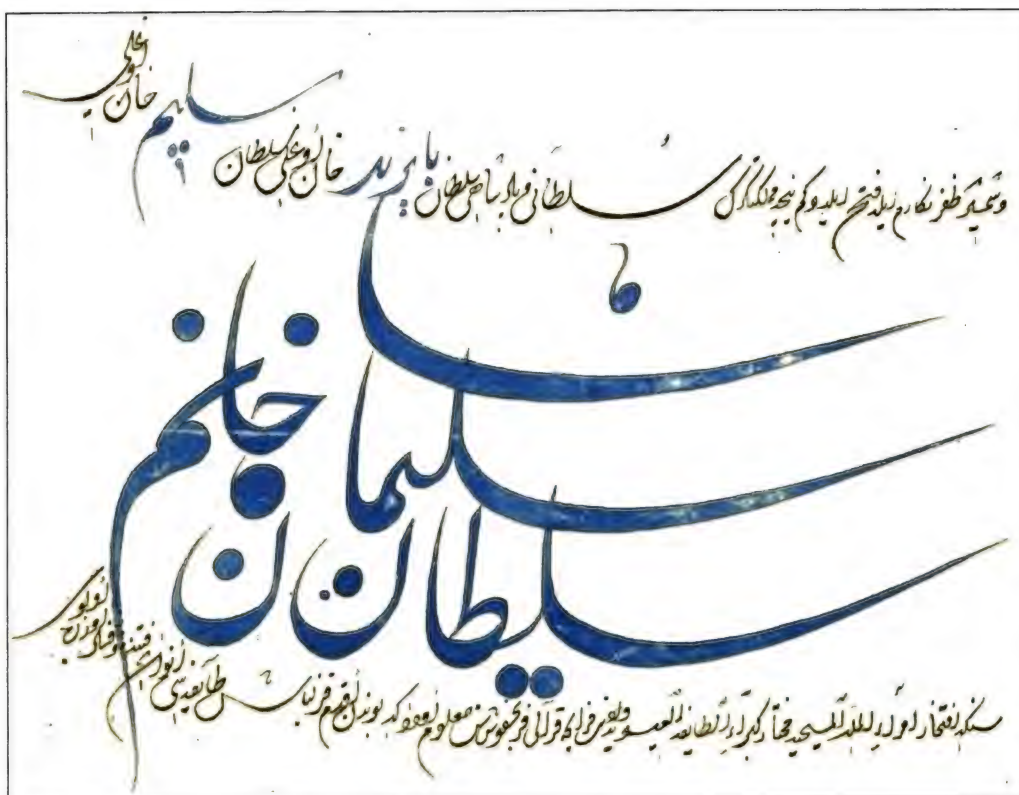 وشمشیر ظفرنکارم ایله فتح ایلدوکم نیجه مملکتلرك سلطانی و پادشاهی سلطان بایزید خان اوغلی سلطان سلیم خان اوغلی
سلطان سلیمان خانم
سنکه افتخار امراء الملة المسیحیة مختار کبراء الطایفة العیسویة فرانچه قرالی سن معلوم اوله که بوندن اقدم قزلباش طایفه سی فتنه و فساد اوزره اولوب